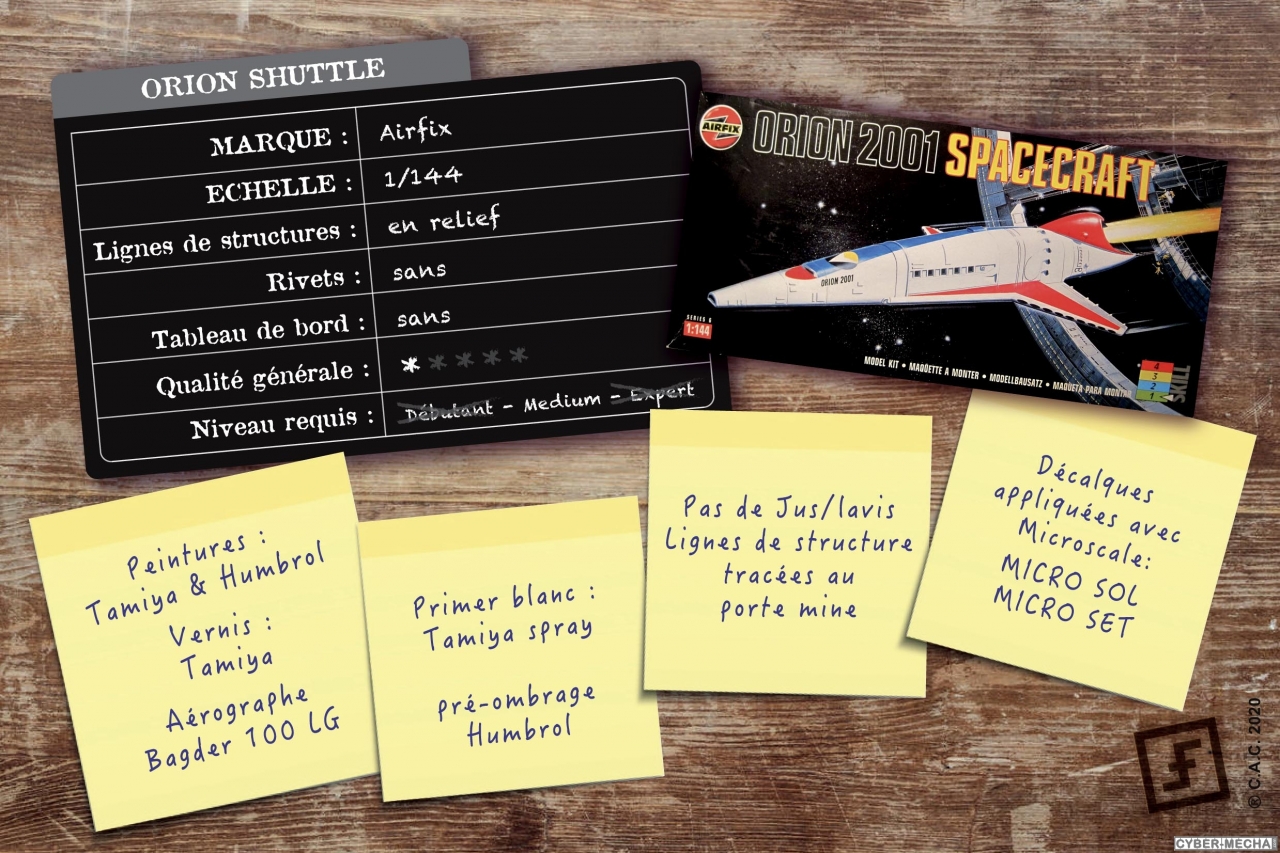 ORION SHUTTLE
MARQUE : Airfix
ECHELLE : 1/144
Lignes de structures : en relief
Rivets : sans
Tableau de bord : sans
Qualité générale : * * * * *
Niveau requis : Débutant - Medium - Expert
AIRFIX
ORION 2001 SPACECRAFT
ORION 2001
SERIES 6
1:144
MODEL KIT • MAQUETTE À MONTER • MODELLBAUSATZ • MAQUETA PARA MONTAR
4
3
2
1
SKILL
Peintures :
Tamiya & Humbrol
Vernis :
Tamiya
Aérographe
Bagder 100 LG
Primer blanc :
Tamiya spray
pré-ombrage
Humbrol
Pas de Jus/lavis
Lignes de structure
tracées au
porte mine
Décalques
appliquées avec
Microscale:
MICRO SOL
MICRO SET
® C.A.C. 2020
CYBER-MECHA